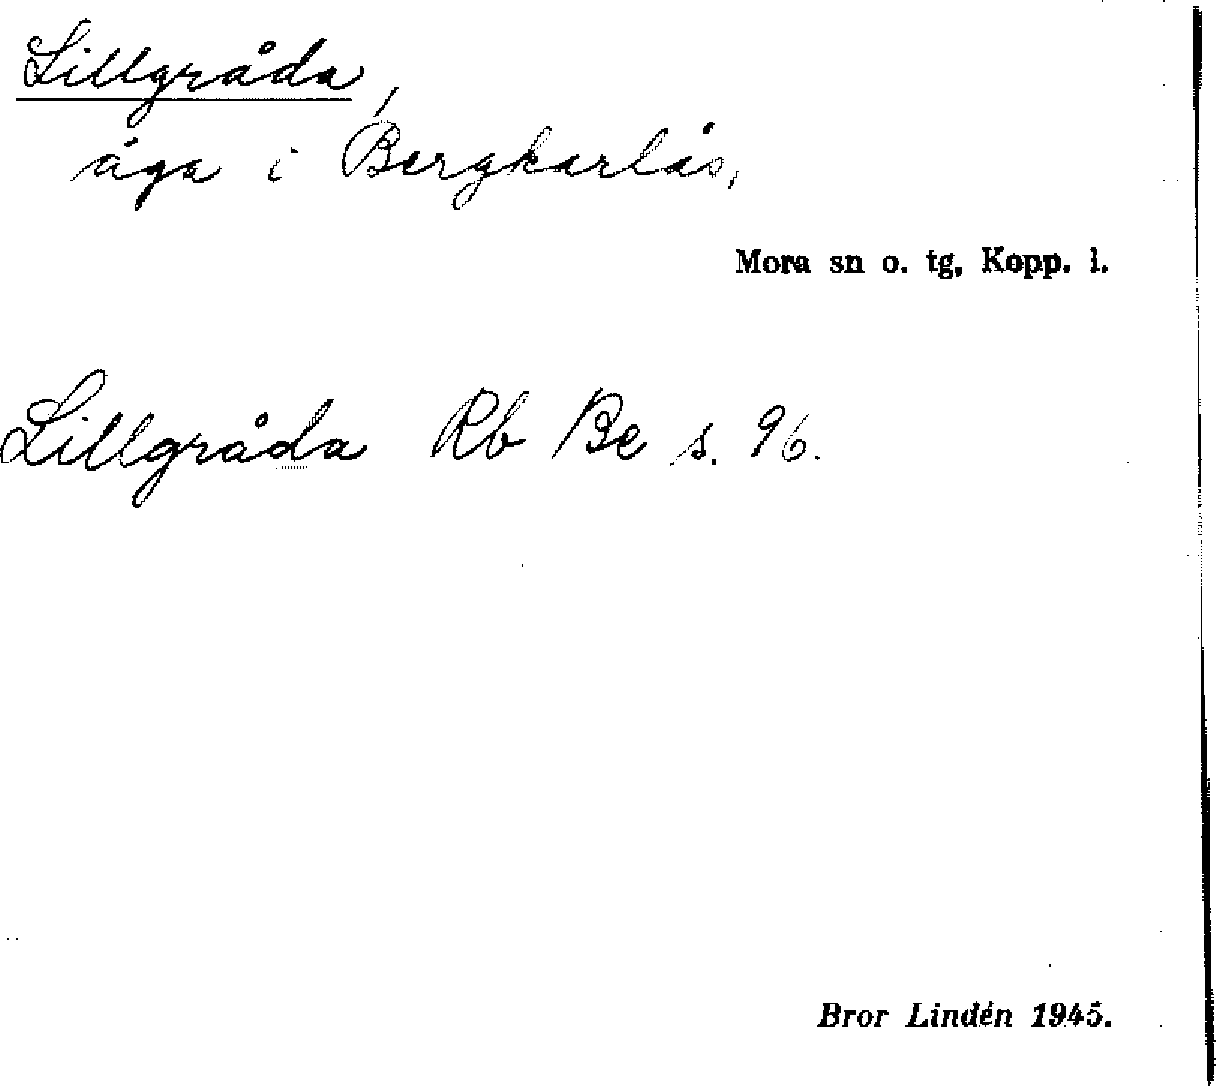 Lillgråda,
äga i Bergkarlås,
Mora sn o. tg, Kopp. l.
Lillgråda Rb Be s. 96.
Bror Lindén 1945.